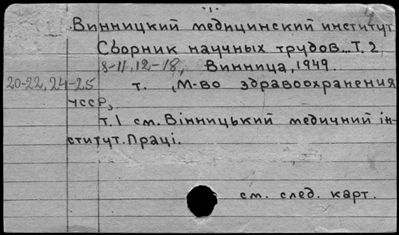 Винницкий медицинский институт
Сборник научных трудов. Т. 2
8-11, 12-18, Винница, 1949.
20-22, 24-25 т. , М-во здравоохранения
УССР,
т. 1 см. Вінницький медичний ін-
ститут. Праці.
см. след. карт.